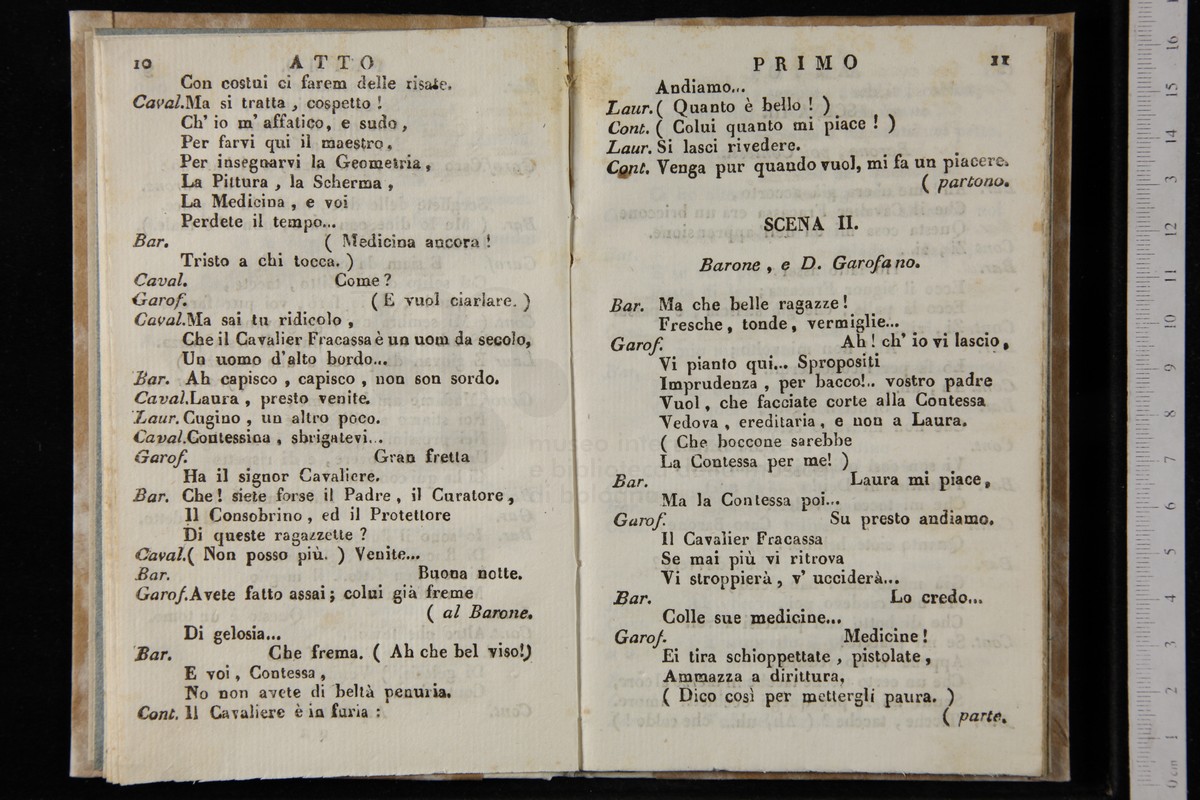 10 ATTO
Con costui ci farem delle risate.
Caval. Ma si tratta , cospetto !
Ch' io m' affatico, e sudo ,
Per farvi qui il maestro.
Per insegnarvi la Geometria,
La Pittura , la Scherma ,
La Medicina , e voi
Perdete il tempo...
Bar. ( Medicina ancora !
Tristo a chi tocca. )
Caval. Come?
Garof. ( E vuol ciarlare. )
Caval. Ma sai tu ridicolo ,
Che il Cavalier Fracassa è un uom da secolo,
Un uomo d'alto bordo...
Bar. Ah capisco , capisco , non son sordo.
Caval. Laura , presto venite.
Laur. Cugino , un altro poco.
Caval. Contessina , sbrigatevi...
Garof. Gran fretta
Ha il signor Cavaliere.
Bar. Che! siete forse il Padre , il Curatore ,
Il Consobrino , ed il Protettore
Di queste ragazzette ?
Caval. ( Non posso più. ) Venite...
Bar. Buona notte.
Garof. Avete fatto assai; colui già freme
( al Barone.
Di gelosia...
Bar. Che frema. ( Ah che bel viso!)
E voi , Contessa ,
No non avete di beltà penuria.
Cont. Il Cavaliere è in furia :
PRIMO 11
Andiamo...
Laur. ( Quanto è bello ! )
Cont. ( Colui quanto mi piace ! )
Laur. Si lasci rivedere.
Cont. Venga pur quando vuol, mi fa un piacere.
( partono.
SCENA II.
Barone , e D. Garofano.
Bar. Ma che belle ragazze!
Fresche, tonde, vermiglie...
Garof. Ah ! ch' io vi lascio,
Vi pianto qui... Spropositi
Imprudenza , per bacco!.. vostro padre
Vuol , che facciate corte alla Contessa
Vedova , ereditaria , e non a Laura.
( Che boccone sarebbe
La Contessa per me! )
Bar. Laura mi piace,
Ma la Contessa poi...
Garof. Su presto andiamo.
Il Cavalier Fracassa
Se mai più vi ritrova
Vi stroppierà , v' ucciderà...
Bar. Lo credo...
Colle sue medicine...
Garof. Medicine!
Ei tira schioppettate , pistolate ,
Ammazza a dirittura,
( Dico così per mettergli paura. )
( parte.